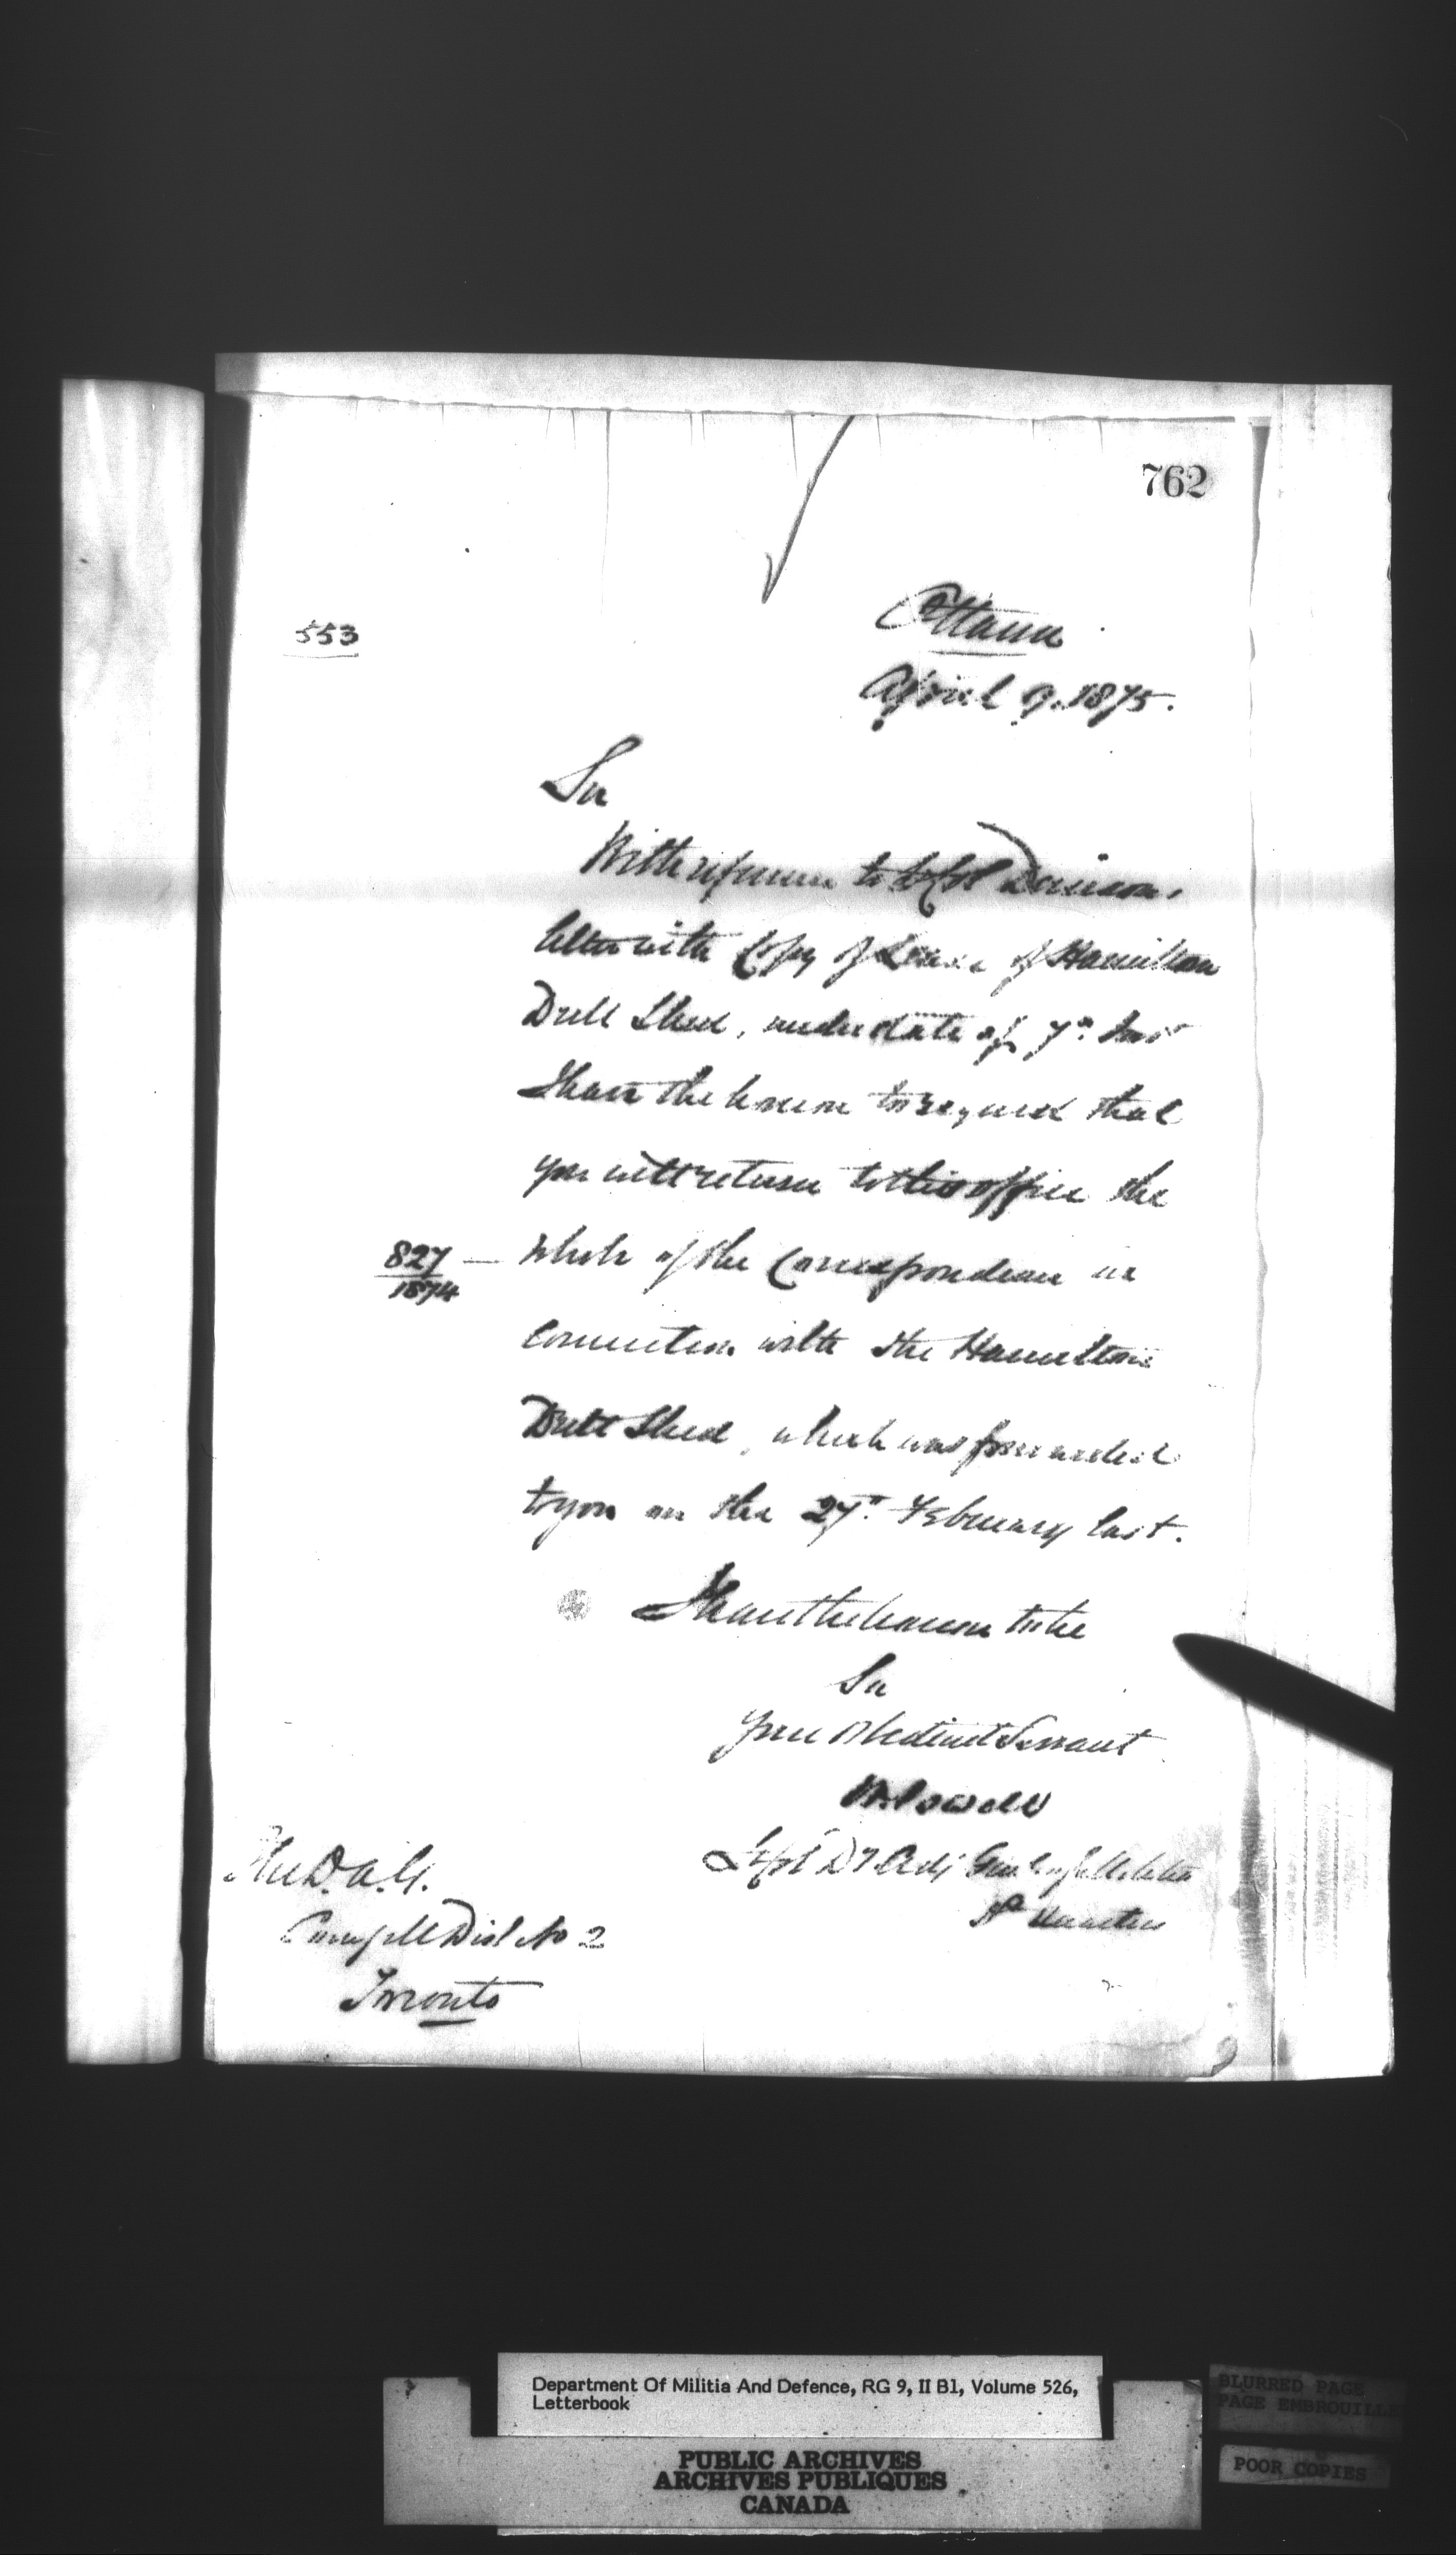 762
553
Ottawa
April 9. 1875.
Sir
With reference to Lt Col Denison's
letter with Copy of Lease of Hamilton
Drill Shed, under date of 7th Inst
I have the honor to request that
you will return to this office the
827
1874
— whole of the Correspondence in
Connection with the Hamilton
Drill Shed, which was forwarded
to you on the 27th February last.
I have the honor to be
Sir
Your Obedient Servant
W. Powell
Lt Col Dy Adj Genl of Militia
The D.A.G.
Comg Mil Dist No 2
Toronto
Department Of Militia And Defence, RG 9, II B1, Volume 526,
Letterbook
PUBLIC ARCHIVES
ARCHIVES PUBLIQUES
CANADA
BLURRED PAGE
PAGE EMBROUILLE
POOR COPIES